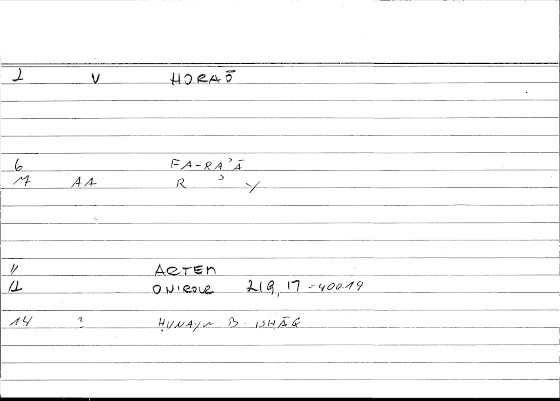 1 V HORAŌ
6 FA-RAʾĀ
7 A1 R ʾ Y
11 ARTEM
12 ONIROCR 219,17 = 400 19
14 ? ḤUNAYN B. ISḤĀQ